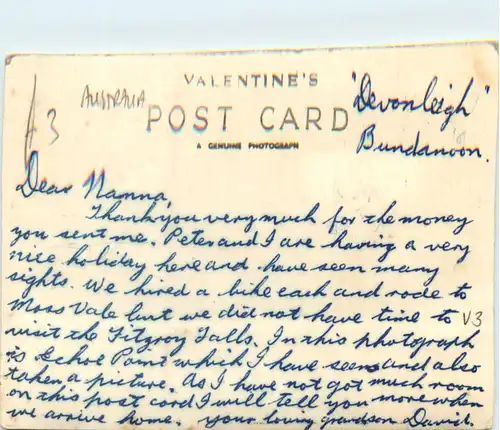 VALENTINE'S
AUSTRALIA
POST CARD
A GENUINE PHOTOGRAPH
"Devonleigh"
Bundanoon.
Dear Nanna,
Thank you very much for the money
you sent me. Peter and I are having a very
nice holiday here and have seen many
sights. We hired a bike each and rode to
Moss Vale but we did not have time to
V3
visit the Fitzroy Falls. In this photograph
is Echoe Point which I have seen and also
taken a picture. As I have not got much room
on this post card I will tell you more when
we arrive home. Your loving grandson David.